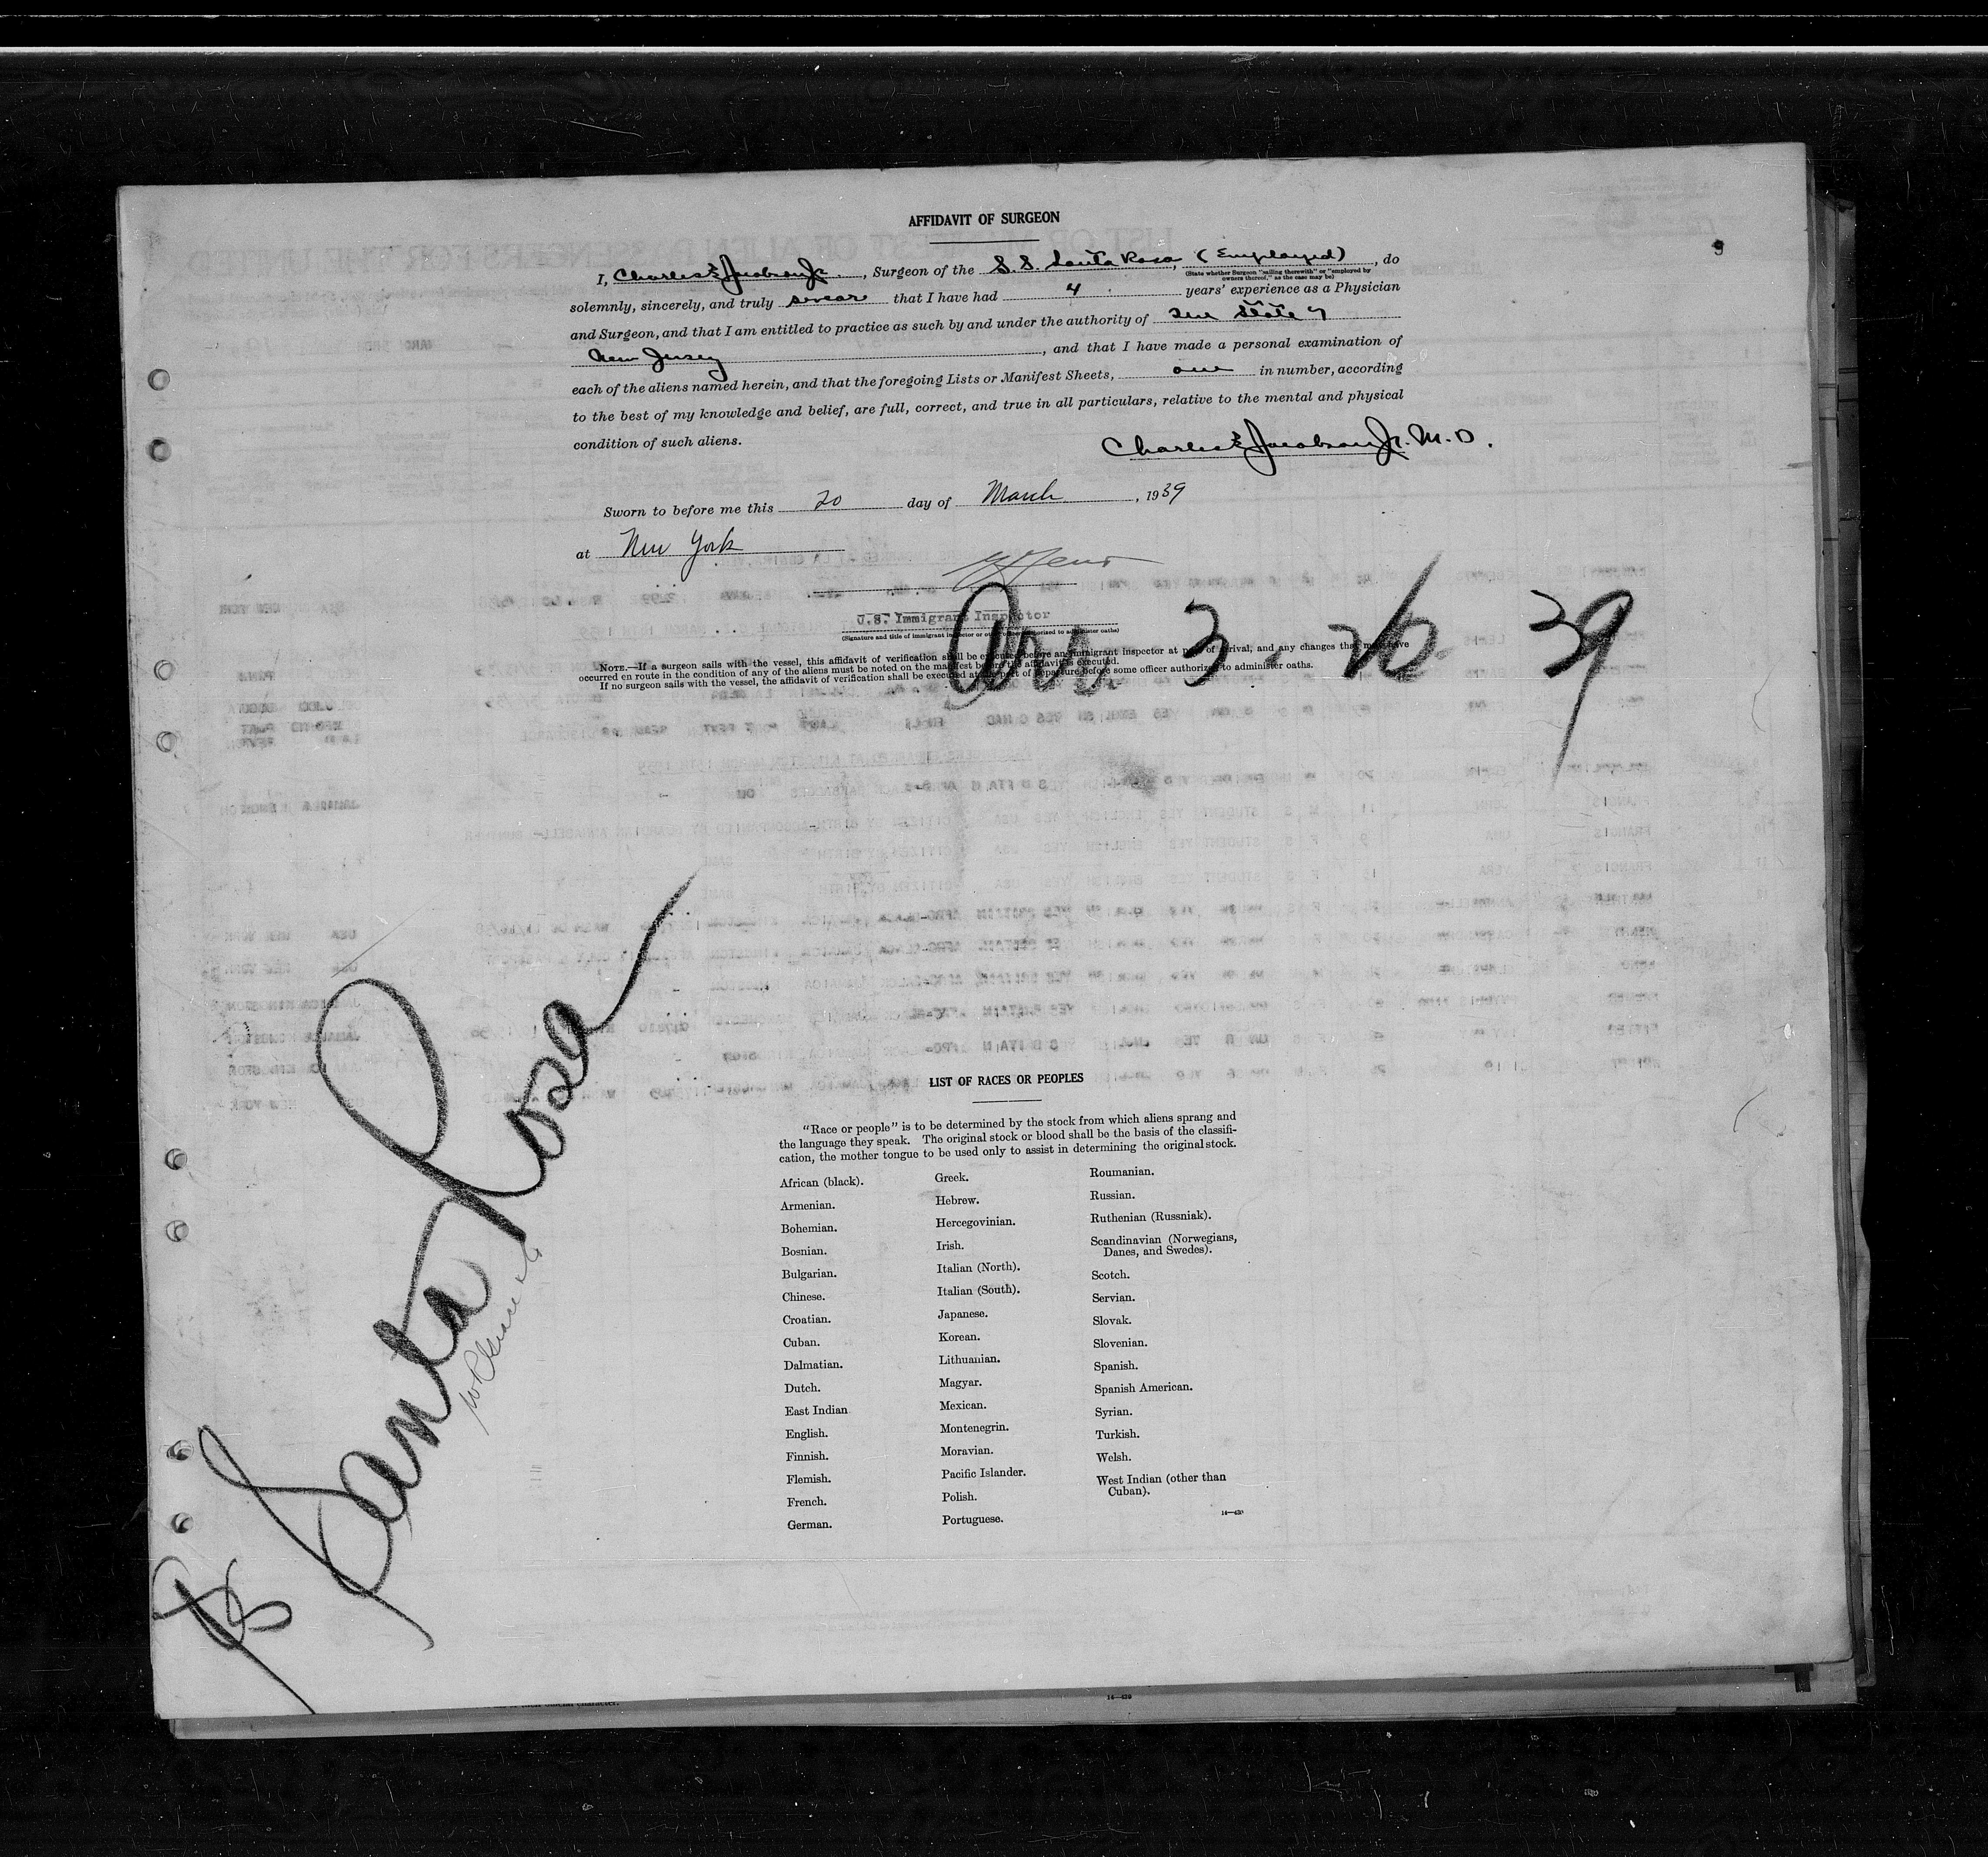 AFFIDAVIT OF SURGEON
I, Charles E Jacobson Jr., Surgeon of the S.S. Santa Rosa, (Employed), do
(State whether Surgeon "sailing therewith" or "employed by
owners thereof," as the case may be)
solemnly, sincerely, and truly swear that I have had 4 years' experience as a Physician
and Surgeon, and that I am entitled to practice as such by and under the authority of State of
New Jersey, and that I have made a personal examination of
each of the aliens named herein, and that the foregoing Lists or Manifest Sheets, one in number, according
to the best of my knowledge and belief, are full, correct, and true in all particulars, relative to the mental and physical
condition of such aliens.
Charles E Jacobson Jr. M.D.
Sworn to before me this 20 day of March, 1939
at New York
U.S. Immigrant Inspector
(Signature and title of immigrant inspector or other officer authorized to administer oaths)
Arr. 3. 20. 39
NOTE.—If a surgeon sails with the vessel, this affidavit of verification shall be executed before an immigrant inspector at port of arrival, and any changes that may have
occurred en route in the condition of any of the aliens must be noted on the manifest before the affidavit is executed.
If no surgeon sails with the vessel, the affidavit of verification shall be executed at the port of departure before some officer authorized to administer oaths.
SS Santa Rosa
LIST OF RACES OR PEOPLES
"Race or people" is to be determined by the stock from which aliens sprang and
the language they speak. The original stock or blood shall be the basis of the classifi-
cation, the mother tongue to be used only to assist in determining the original stock.
African (black).
Armenian.
Bohemian.
Bosnian.
Bulgarian.
Chinese.
Croatian.
Cuban.
Dalmatian.
Dutch.
East Indian
English.
Finnish.
Flemish.
French.
German.
Greek.
Hebrew.
Hercegovinian.
Irish.
Italian (North).
Italian (South).
Japanese.
Korean.
Lithuanian.
Magyar.
Mexican.
Montenegrin.
Moravian.
Pacific Islander.
Polish.
Portuguese.
Roumanian.
Russian.
Ruthenian (Russniak).
Scandinavian (Norwegians,
Danes, and Swedes).
Scotch.
Servian.
Slovak.
Slovenian.
Spanish.
Spanish American.
Syrian.
Turkish.
Welsh.
West Indian (other than
Cuban).